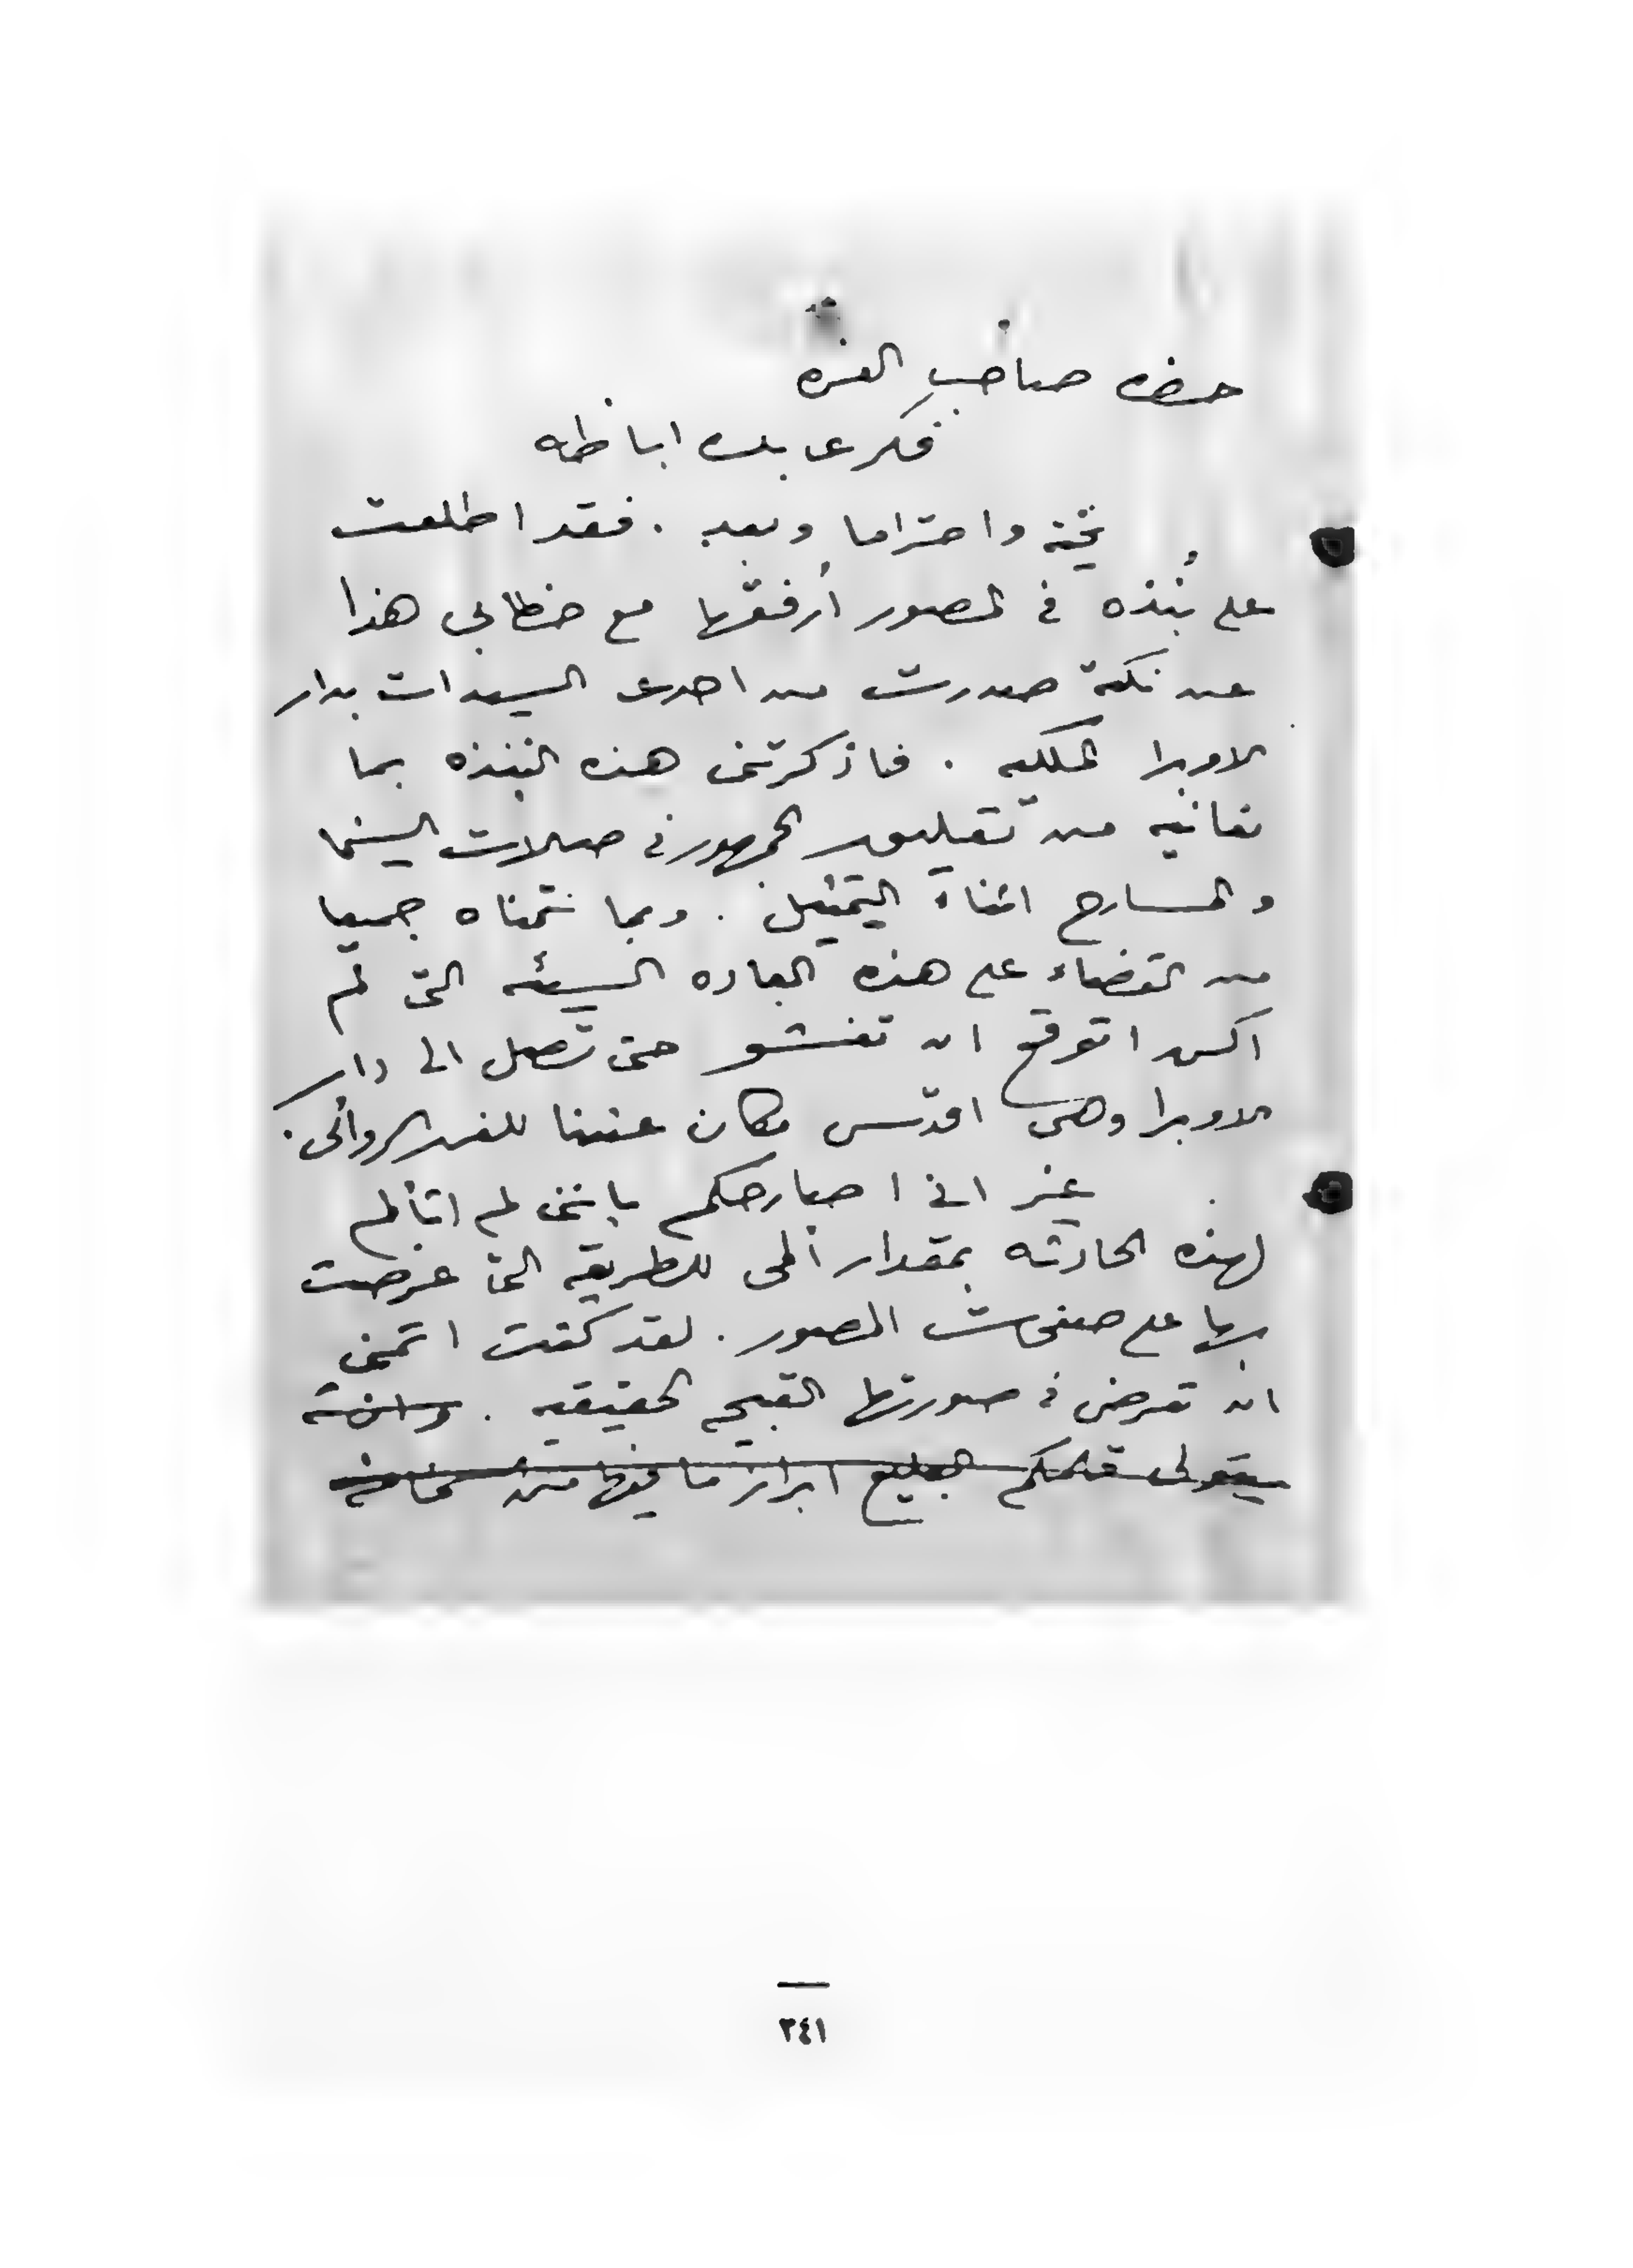 حضره صاحب العزه
فكرى بك اباظه
تحية واحتراما وبعد . فقد اطلعت
على نبذه فى المصور أرفقها مع خطابى هذا
عن نكتة صدرت من احدى السيدات بدار
الاوبرا الملكيه . فاذكرتنى هذه النبذه بما
نعانيه من تعليق الجمهور فى صالات السينما
والمسارح اثناء التمثيل . وبما نتمناه جميعا
من القضاء على هذه العاده السيئه التى لم
اكن اتوقع ان تفشو حتى تصل الى دار
الاوبرا وهى اقدس مكان عندنا للفن الروائى .
غير انى اصارحكم بإننى لم اتألم
لهذه الحادثه بمقدار ألمى للطريقه التى عرضت
بها على صفحات المصور . لقد كنت اتمنى
ان تعرض فى صورتها القبيحه الحقيقيه . وان
يتولى قلمكم البليغ ابراز ما فيها من سخافه
٣٤١